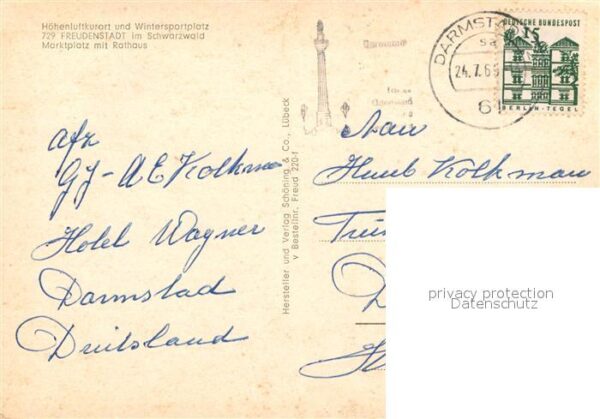 Höhenluftkurort und Wintersportplatz
729 FREUDENSTADT im Schwarzwald
Marktplatz mit Rathaus
DARMSTADT
24.7.65
61
DEUTSCHE BUNDESPOST
15
BERLIN-TEGEL
Hersteller und Verlag Schöning & Co., Lübeck
v Bestellnr. Freud 220-f
afz
GJ- AE Kolkman
Hotel Wagner
Darmstad
Duitsland
Aan
Huub Kolkman
privacy protection
Datenschutz